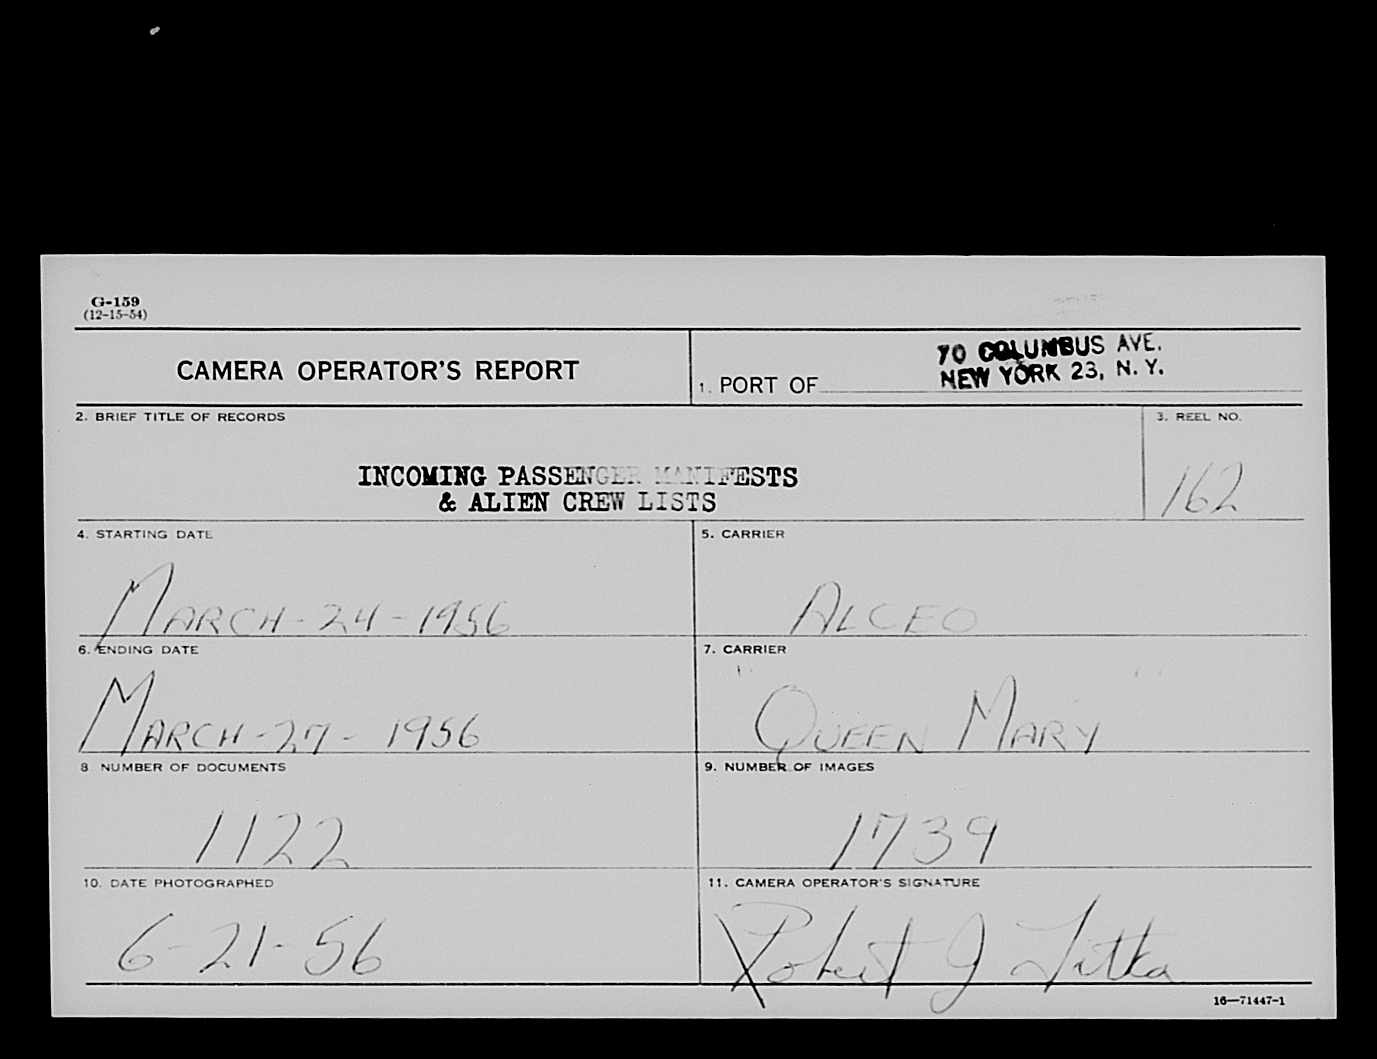 G-159
(12-15-54)
CAMERA OPERATOR'S REPORT
1. PORT OF
70 COLUMBUS AVE.
NEW YORK 23, N. Y.
2. BRIEF TITLE OF RECORDS
INCOMING PASSENGER MANIFESTS
& ALIEN CREW LISTS
3. REEL NO.
162
4. STARTING DATE
MARCH-24-1956
5. CARRIER
ALCEO
6. ENDING DATE
MARCH-27-1956
7. CARRIER
"QUEEN MARY"
8 NUMBER OF DOCUMENTS
1122
9. NUMBER OF IMAGES
1739
10. DATE PHOTOGRAPHED
6-21-56
11. CAMERA OPERATOR'S SIGNATURE
Robert J
16—71447-1